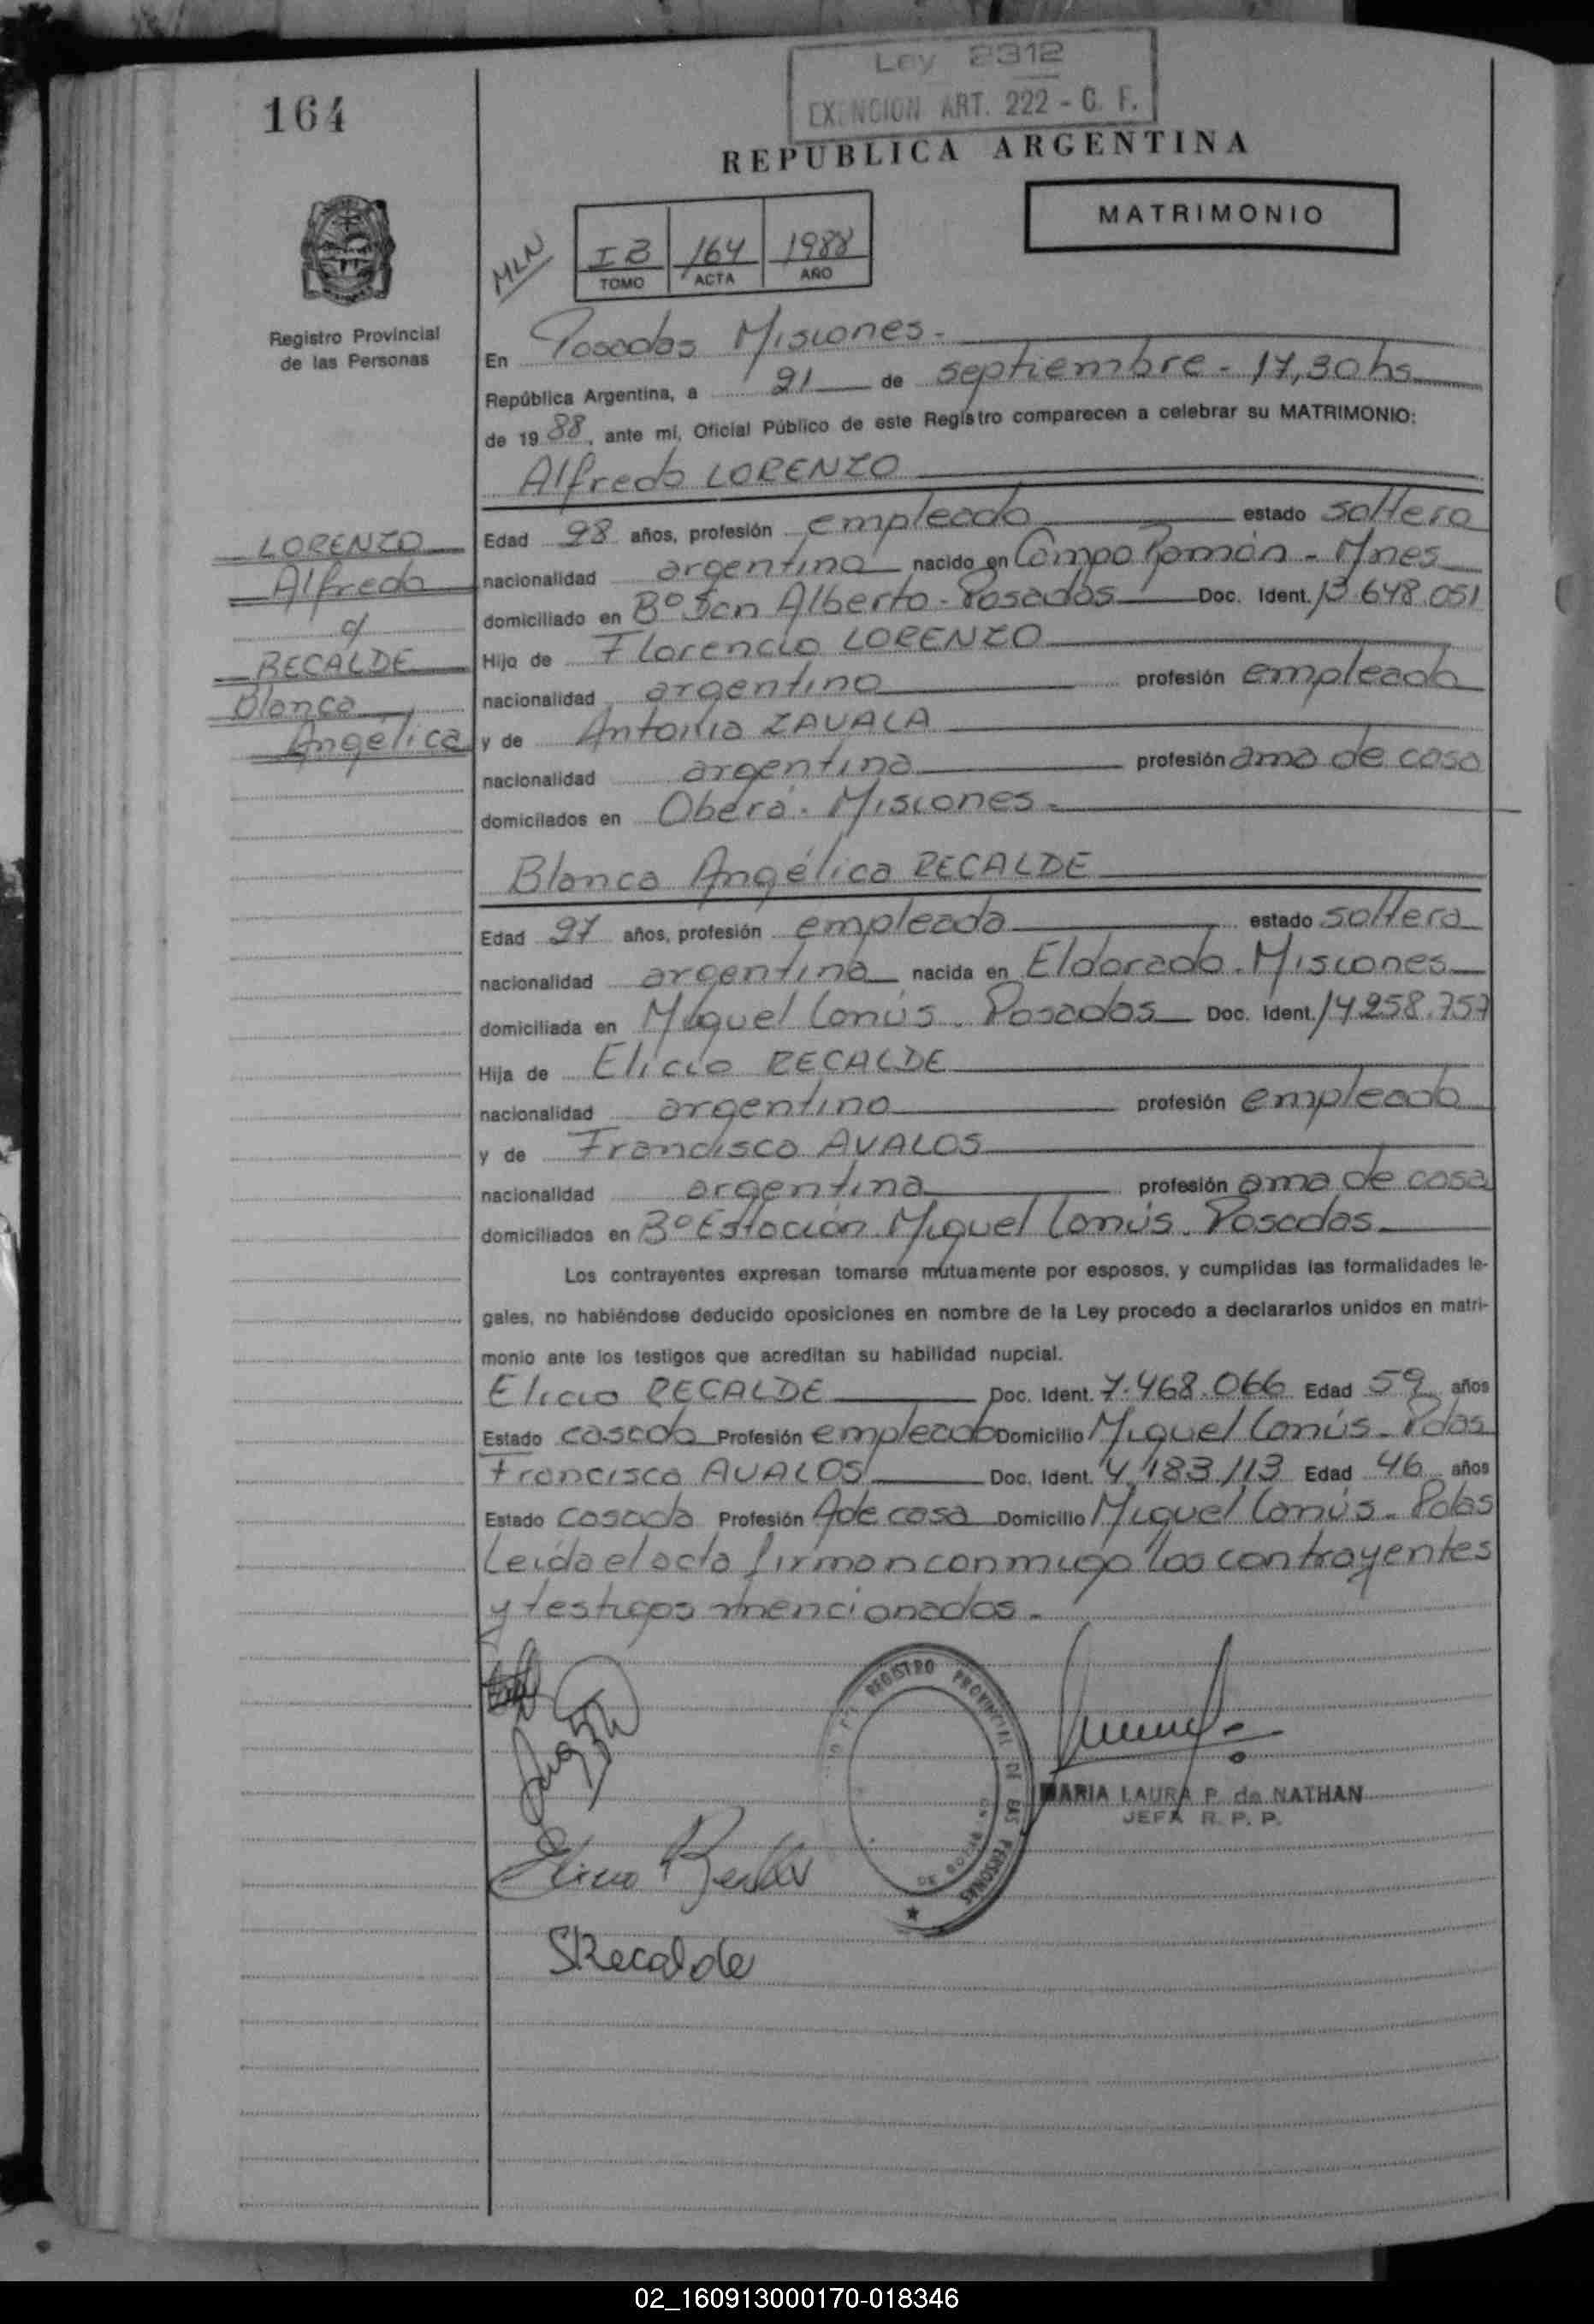 Ley 2312
EXENCION ART. 222 - C. F.
164
REPUBLICA ARGENTINA
MATRIMONIO
MLN
I B 164 1988
TOMO ACTA AÑO
Registro Provincial
de las Personas
En Posadas Misiones.-
República Argentina, a 21 de septiembre - 17,30 hs
de 19 88, ante mí, Oficial Público de este Registro comparecen a celebrar su MATRIMONIO:
Alfredo LORENZO
LORENZO
Alfredo
c/
RECALDE
Blanca
Angélica
Edad 28 años, profesión empleado estado soltero
nacionalidad argentina nacido en Campo Ramón - Mnes
domiciliado en Bº San Alberto - Posadas Doc. Ident. 13.648.051
Hijo de Florencio LORENZO
nacionalidad argentino profesión empleado
y de Antonia ZAVALA
nacionalidad argentina profesión ama de casa
domiciliados en Oberá - Misiones -
Blanca Angélica RECALDE
Edad 27 años, profesión empleada estado soltera
nacionalidad argentina nacida en Eldorado - Misiones
domiciliada en Miguel Lanús - Posadas Doc. Ident. 14.258.757
Hija de Elicio RECALDE
nacionalidad argentino profesión empleado
y de Francisca AVALOS
nacionalidad argentina profesión ama de casa
domiciliados en Bº Estación Miguel Lanús - Posadas
Los contrayentes expresan tomarse mútuamente por esposos, y cumplidas las formalidades le-
gales, no habiéndose deducido oposiciones en nombre de la Ley procedo a declararlos unidos en matri-
monio ante los testigos que acreditan su habilidad nupcial.
Elicio RECALDE Doc. Ident. 7.468.066 Edad 59 años
Estado casado Profesión empleado Domicilio Miguel Lanús - Pdas
Francisca AVALOS Doc. Ident. 4.183.113 Edad 46 años
Estado casada Profesión A de casa Domicilio Miguel Lanús - Pdas
Leída el acta firman conmigo los contrayentes
y testigos mencionados -
REGISTRO PROVINCIAL DE LAS PERSONAS
MARIA LAURA P. de NATHAN
JEFA R. P. P.
SRecalde
02_160913000170-018346